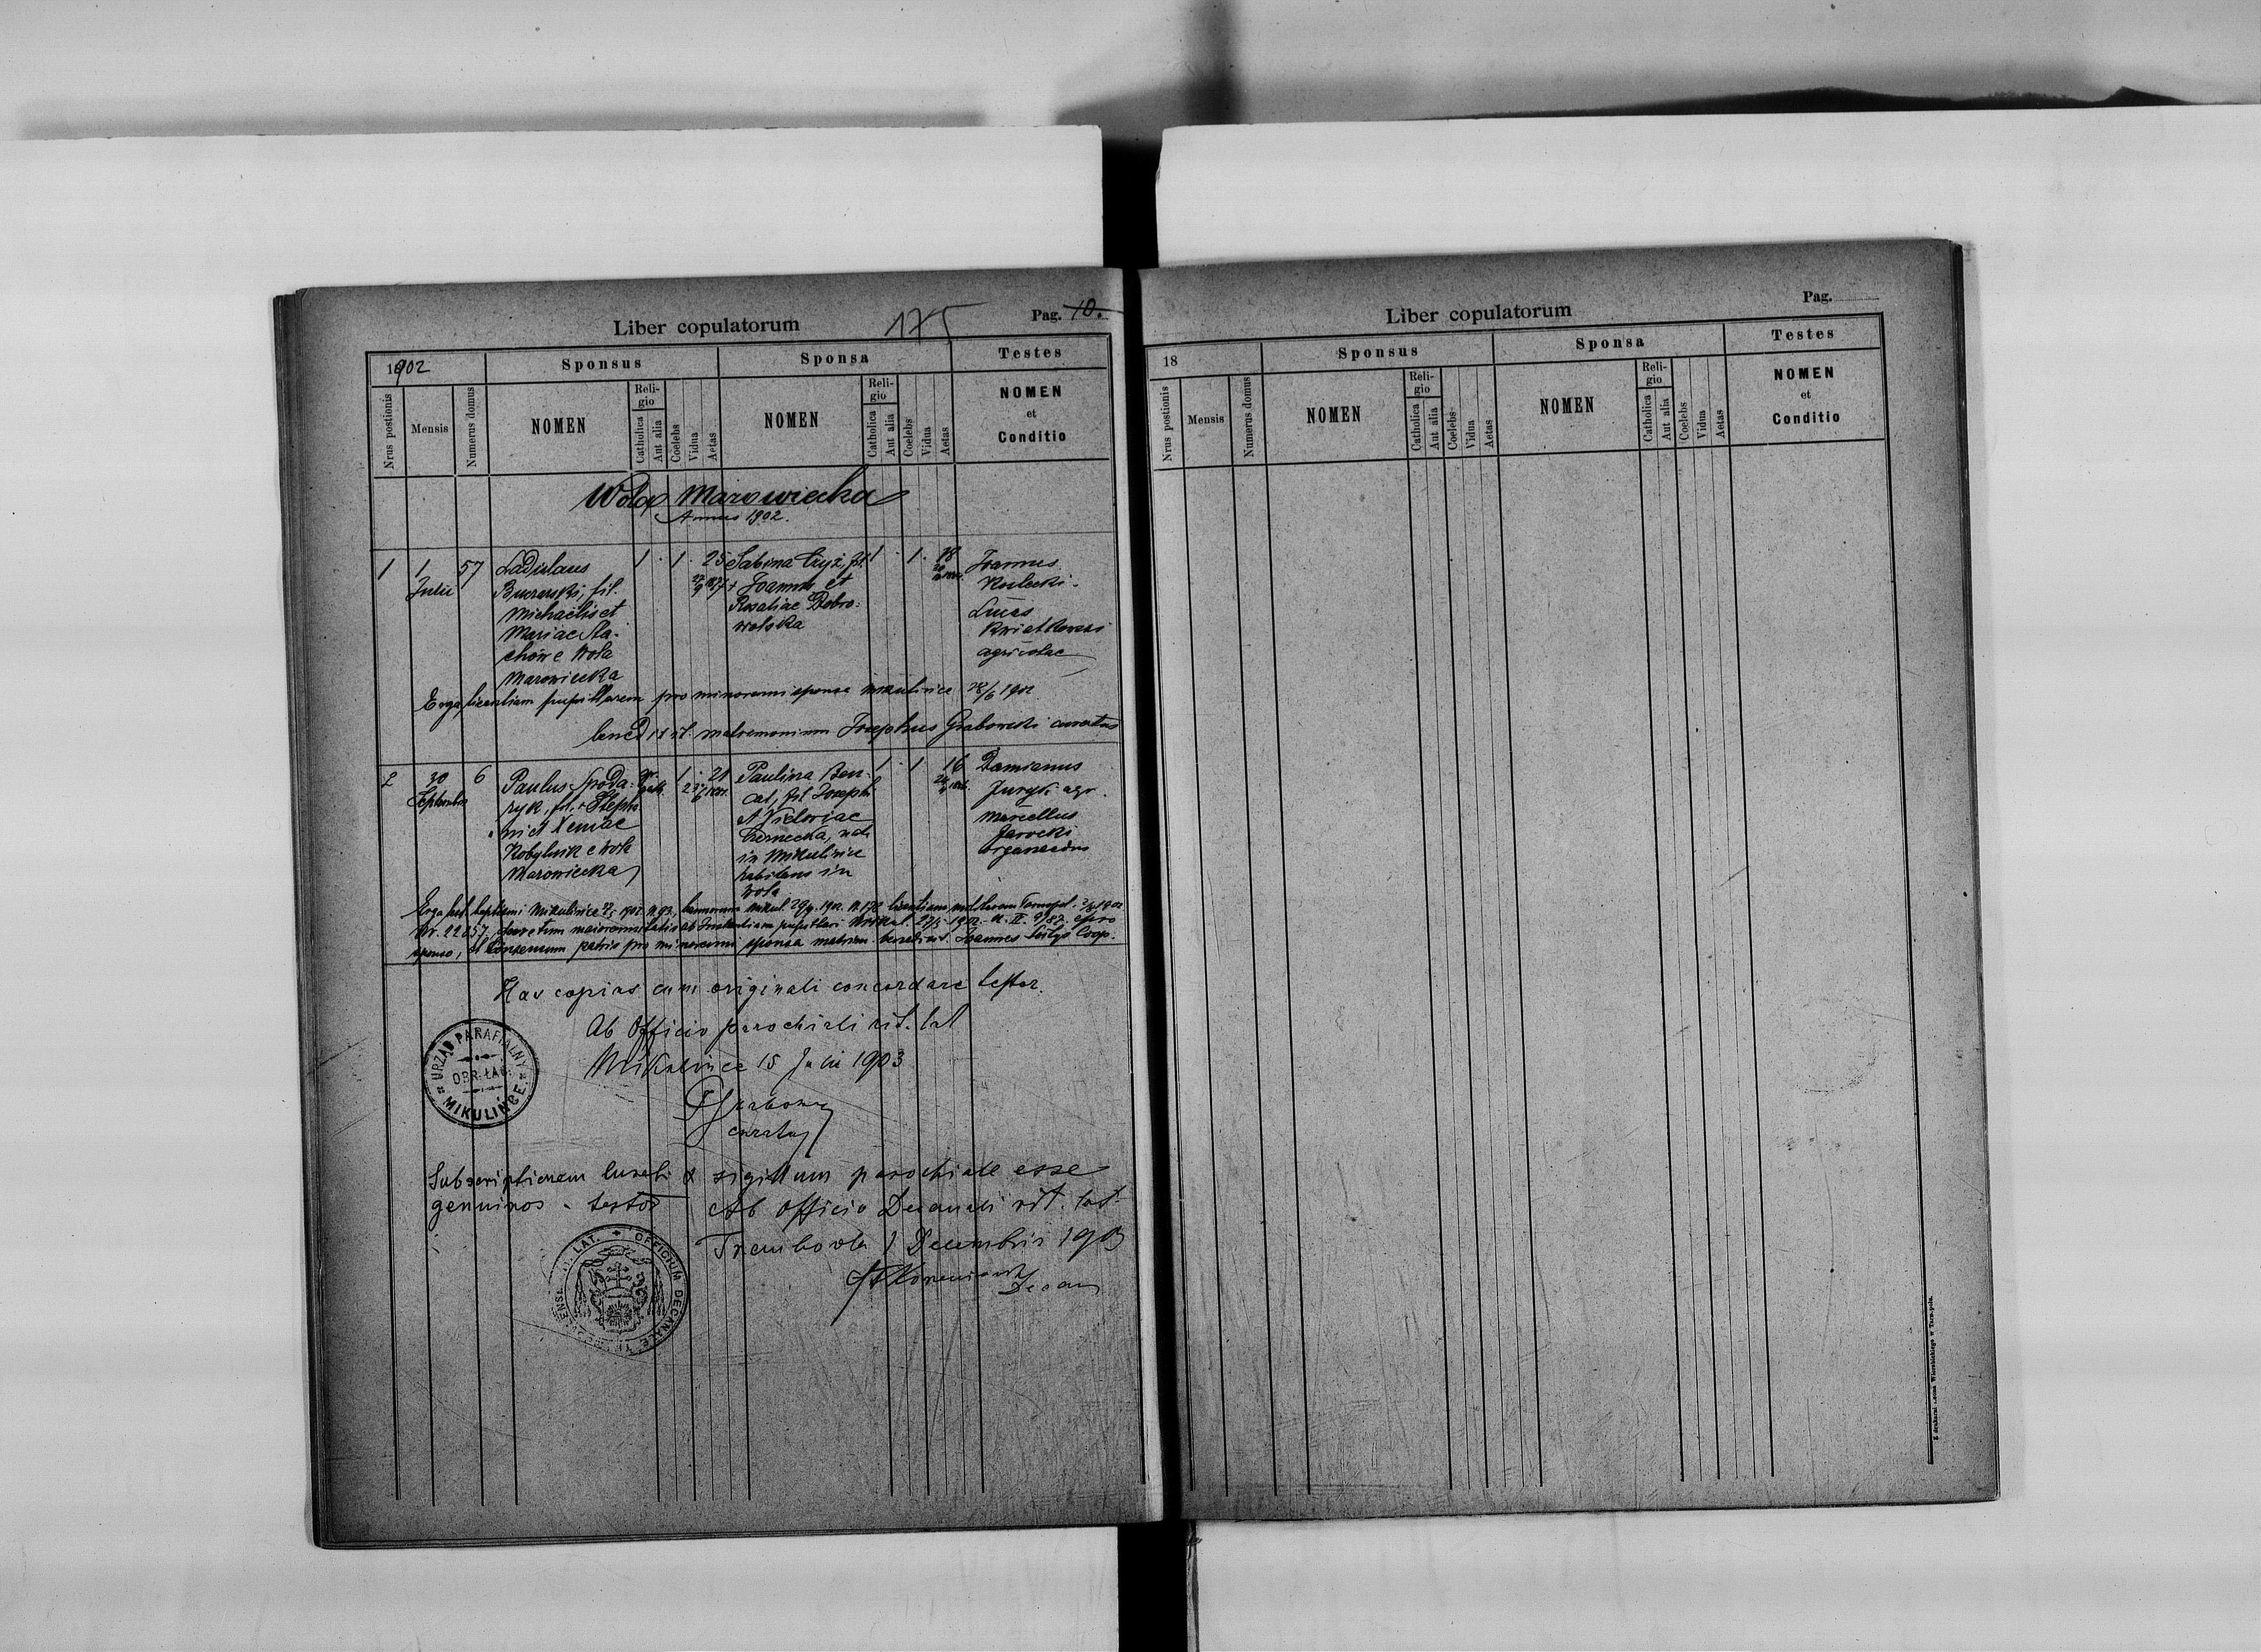 Liber copulatorum
175
Pag. 10.
1902
Sponsus
Sponsa
Testes
Nrus postionis
Mensis
Numerus domus
NOMEN
Religio
Catholica
Aut alia
Coelebs
Vidua
Aetas
NOMEN
Religio
Catholica
Aut alia
Coelebs
Vidua
Aetas
NOMEN
et
Conditio
Wola Mazowiecka
Annus 1902.
1
1
Julii
57
Ladislaus
fil.
Michaelis et
Mariae Sta-
chów e Wola
Mazowiecka
1 . 1 . 25
Sabina Czyż, fil.
+ Joannis et
Rosaliae Dobro-
wolska
1 . 1 . 18
Joannes
Kulecki.
Lucas
Kwiatkowski
agricolae
Erga licentiam pupillarem pro minorenni sponsa Mikulince 28/6 1902
bened ixit matrimonium Josephus Grabowski curatus
2
30
Septembris
6
Paulus Spoda-
ryk, fil. + Stepha
ni et Xeniae
Kobylnik e Wola
Mazowiecka
1 . 21
Paulina
fil Josephi
et Victoriae
Czernecka, nata
in Mikulince
habitans in
Wola
1 . 1 16
Damianus
Juryk agr.
Marcellus
Jarocki
organoedus
Erga test. baptismi Mikulince 1902 N. 93, bannorum Mikul. 29/9 1902. N. 178 licentiam militarem Tarnopol.
Nr. 22057, pupillari Mikul. 1902
sponso, et consensum patris pro minorenni sponsa matrim. benedixit Joannes Coop.
Has copias cum originali concordare testor.
Ab Officio parochiali rit. lat
Mikulince 15 Julii 1903
curatus
URZĄD PARAFIALNY
OBR. ŁAC.
MIKULIŃCE
Subscriptionem curati & sigillum parochiale esse
genuinos - testor Ab Officio Decanali rit. lat.
Trembowla 1 Decembris 1903
Decan
LAT. + OFFICIUM DECANALE
Liber copulatorum
Pag.
18
Sponsus
Sponsa
Testes
Nrus postionis
Mensis
Numerus domus
NOMEN
Religio
Catholica
Aut alia
Coelebs
Vidua
Aetas
NOMEN
Religio
Catholica
Aut alia
Coelebs
Vidua
Aetas
NOMEN
et
Conditio